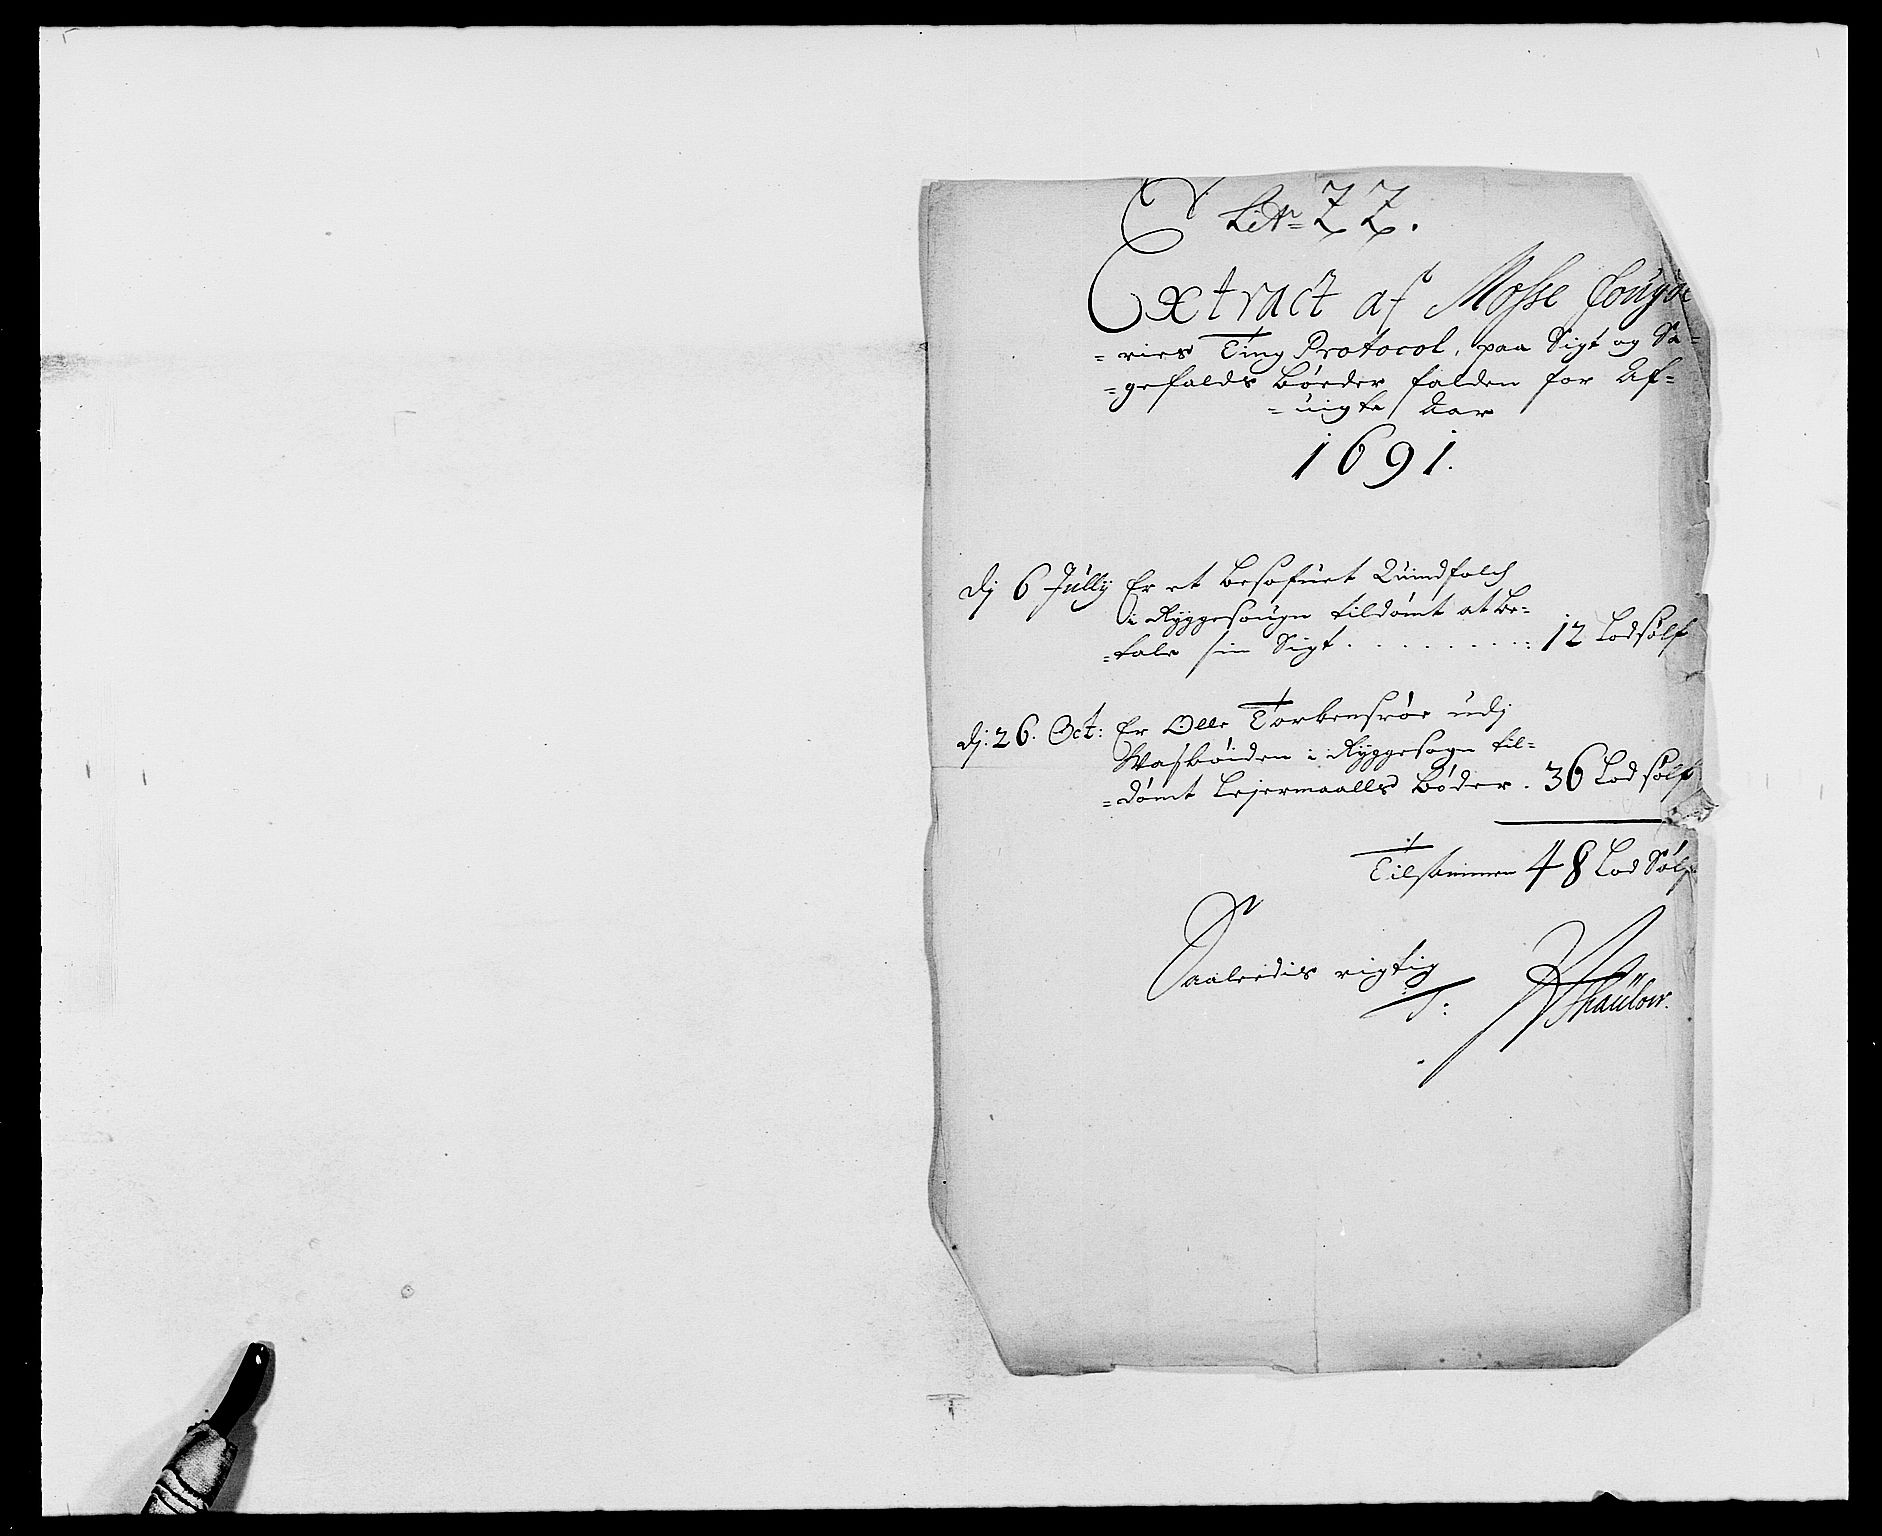 Litr= ZZ.
Extract af Mosse fougde
=ries Ting Protocol, paa Sigt og Sa=
=gefalds bøeder, falden for Af=
=uigte Aar
1691.
dj 6 Jullij Er et besofuet Quindfolch
i Ryggesougn tildømt at be=
=tale sin Sigt . . . . . . . . . : 12 Lod sølf
dj. 26. Oct: Er Olle Torbensrøe udj
Wasbøiden i Ryggesogn til=
=dømt Lejermaalls bøder . 36 Lod sølf
Tilsammen 48 Lod Sølf
Saaleedis rigtig
T: